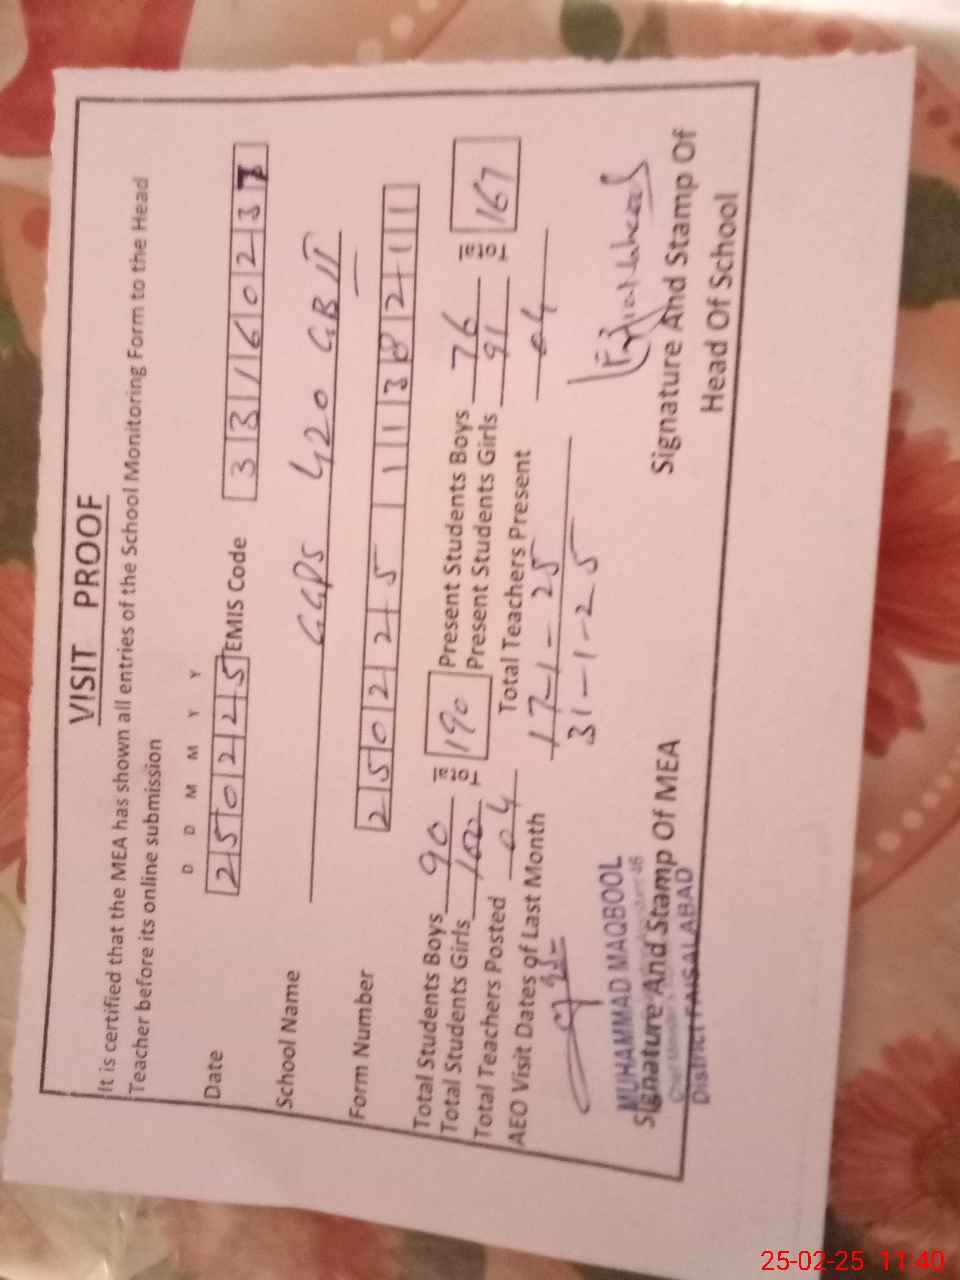 VISIT PROOF
It is certified that the MEA has shown all entries of the School Monitoring Form to the Head
Teacher before its online submission
D D M M Y Y
Date 250225 EMIS Code 33160237
School Name GGPS 420 GB II
Form Number 250225 1138211
Total Students Boys 90 Present Students Boys 76
Total Students Girls 100 Total 190 Present Students Girls 91 Total 167
Total Teachers Posted 04 Total Teachers Present 04
AEO Visit Dates of Last Month 17-1-25
31-1-25
MUHAMMAD MAQBOOL
Signature And Stamp Of MEA Signature And Stamp Of
Head Of School
District FAISALABAD
25-02-25 11:40